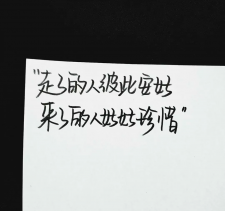 “走了的人彼此安好
来了的人好好珍惜”